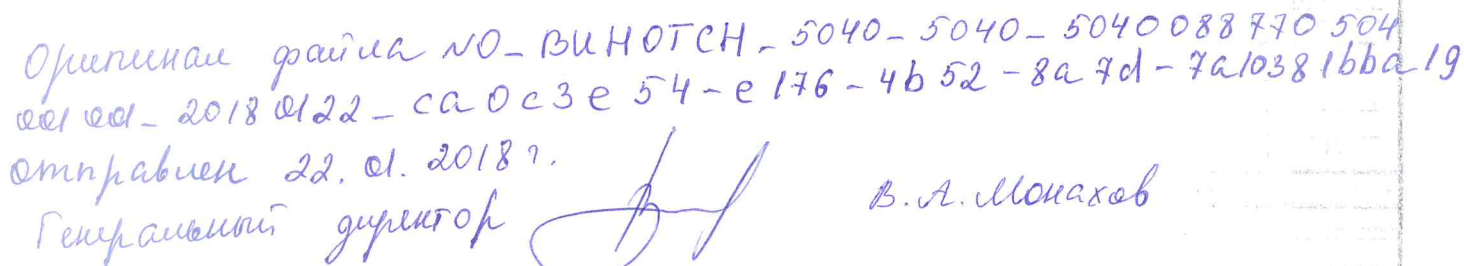 Оригинал файла NO_ВИНОТСН_5040_5040_5040088770504
001001_20180122_ca0c3e54-e176-4b52-8a7d-7a10381bba19
отправлен 22.01.2018 г.
Генеральный директор В.А.Монахов